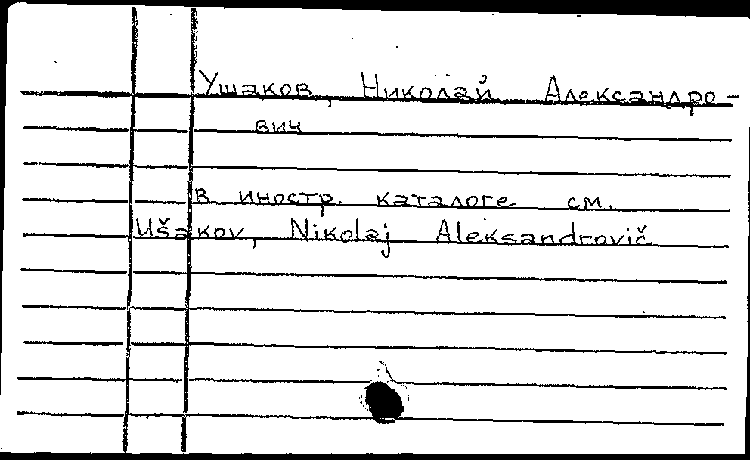 Ушаков, Николай Александро-
вич
в иностр. каталоге см.
Ušakov, Nikolaj Aleksandrovič